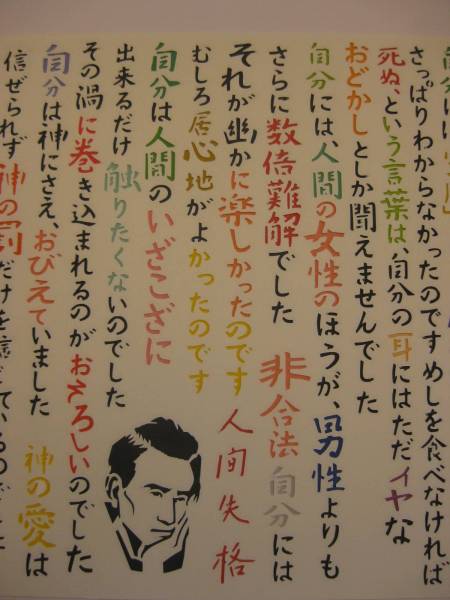 さっぱりわからなかったのです めしを食べなければ
死ぬ、という言葉は、自分の耳にはただイヤな
おどかしとしか聞えませんでした
自分には、人間の女性のほうが、男性よりも
さらに数倍難解でした 非合法 自分には
それが幽かに楽しかったのです
人間失格
むしろ居心地がよかったのです
自分は人間のいざこざに
出来るだけ触りたくないのでした
その渦に巻き込まれるのがおそろしいのでした
自分は神にさえ、おびえていました 神の愛は
信ぜられず神の罰だけを信じているので